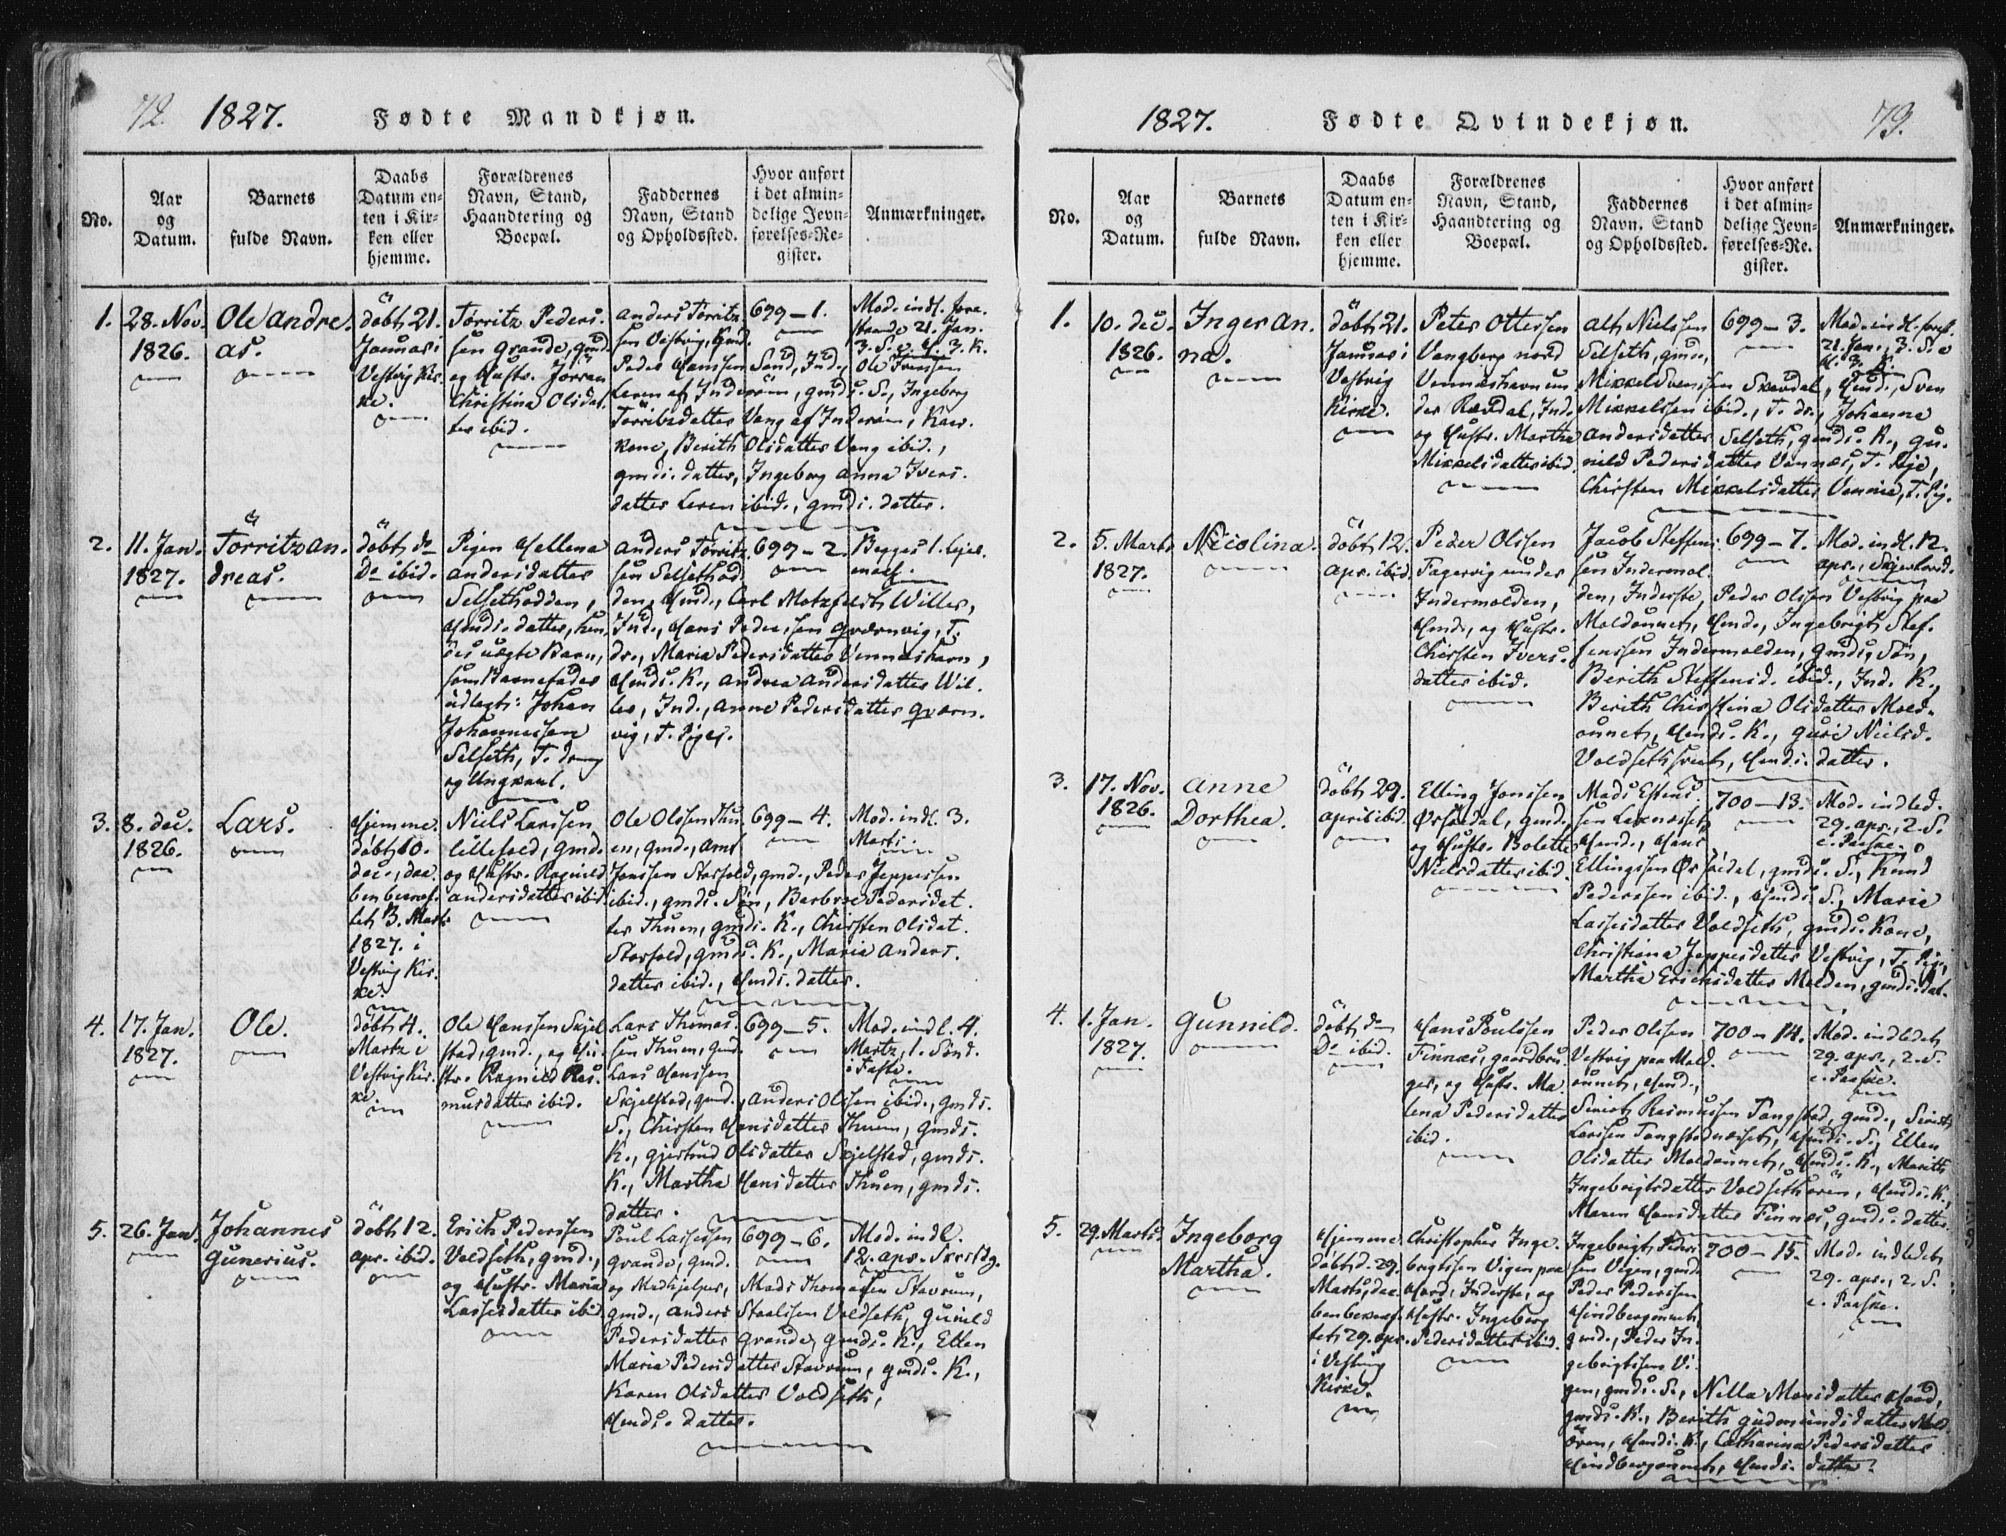 72. 1827. Fødte Mandkjøn.
No.
Aar
og
Datum.
Barnets
fulde Navn.
Daabs
Datum en-
ten i Kir-
ken eller
hjemme.
Forældrenes
Navn, Stand,
Haandtering og
Boepæl.
Faddernes
Navn, Stand
og Opholdssted.
Hvor anført
i det almin-
delige Jevn-
førelses-Re-
gister.
Anmærkninger.
1.
28. Nov.
1826.
Ole Andre-
as.
döbt 21.
Januar i
Vestvig Kir-
ke.
Törritz Peders-
sen Grande, gmd.
og Hustr. Jörran
Christina Olsdat-
ter ibid.
Anders Törritz-
sen Vestvig, Gmd.
Peder Hanssen Sund, Ind.,
Leren af Inderöen, gmds. S., Ingeborg
Törritzdatter Vang af Inderöen, Kaar-
kone, Berith Olsdatter Vang ibid.,
gmds. datter, Ingeborg Anna Ivers-
datter Leren ibid., gmds. datter.
699 – 1.
Mod. indl. fore-
staaende 21. Jan.
3. S. e. H. 3. K.
Ole Iverssen
2.
11. Jan.
1827.
Törritz An-
dreas.
döbt do
Do ibid.
Pigen Hellena
Andersdatter
Selsethodden,
Hmds. datter, hen-
des uægte Barn,
som Barnefader
udlagt: Johan
Johannessen
Selseth, T. dreng
og Ungkarl.
Anders Törritz-
sen Selsethod-
den, Hmd., Carl Motzfeldt Willer,
Ind., Hans Pederssen Qværnvig, T.
dr., Maria Pedersdatter Vennæshavn,
Hmds. K., Andrea Andersdatter Wil-
ler, Ind., Anne Pedersdatter Qværn-
vig, T. Piger.
699 – 2.
Begges 1. Leier-
maal.
3.
8. dec.
1826.
Lars.
Hjemme-
döbt 10.
dec., daa-
ben bekræf-
tet 3. Marts
1827. i
Vestvig Kir-
ke.
Niels Larssen
Lillesold, gmd.
og Hustr. Ragnild
Andersdatter ibid.
Ole Olssen Thu-
en, gmd., Arnt
Jonssen Storsold, gmd., Peder Jeppessen
ibid., gmds. Sön, Barbroe Pedersdat-
ter Thuen, gmds. K., Chirsten Olsdat.
Storsold, gmds. K., Maria Anders-
datter ibid., Hmds. datter.
699 – 4.
Mod. indl. 3.
Marts.
4.
17. Jan.
1827.
Ole.
döbt 4.
Martz i
Vestvig Kir-
ke.
Ole Hanssen Skjel-
stad, gmd., og Hu-
str. Ragnild Ras-
musdatter ibid.
Lars Thomas-
sen Thuen, gmd.
Lars Hanssen
Skjelstad, gmd., Anders Olssen ibid., gmds.
S., Chirsten Hansdatter Thuen, gmds.
K., Gjertrud Olsdatter Skjelstad, gmds.
K., Martha Hansdatter Thuen, gmds.
datter.
699 – 5.
Mod. indl. 4.
Martz, 1. Sönd.
i Faste.
5.
26. Jan.
Johannes
Gunerius.
döbt 12.
apr. ibid.
Erich Pederssen
Voldseth, gmd.,
og Hustr. Maria
Lassesdatter ibid.
Poul Lassessen
Grande, gmd.
og Medhjelper, Mads Thomassen Stavrum,
gmd., Anders Staalssen Voldseth, Gunild
Pedersdatter Grande, gmds. K., Ellen
Maria Pedersdatter Stavrum, gmds. K.,
Karen Olsdatter Voldseth,
Hmds. datter.
699 – 6.
Mod. indl.
12. apr. Skertdg.
1827. Fødte Qvindekjøn. 73.
No.
Aar
og
Datum.
Barnets
fulde Navn.
Daabs
Datum en-
ten i Kir-
ken eller
hjemme.
Forældrenes
Navn, Stand,
Haandtering og
Boepæl.
Faddernes
Navn, Stand
og Opholdssted.
Hvor anført
i det almin-
delige Jevn-
førelses-Re-
gister.
Anmærkninger.
1.
10. dec.
1826.
Inger An-
na.
döbt 21.
Januar i
Vestvig
Kirke.
Peter Ottersen
Vangberg nord
Vennæshavn un-
der Ravdal, Ind.
og Hustr. Martha
Mikkelsdatter ibid.
Alt Nielssen
Selseth, gmd.,
Mikkel Svenssen Skavdal, Hmd., Sven
Mikkelssen ibid., T. dr., Johanne
Andersdatter Selseth, gmds. K., Gu-
nild Pedersdatter Vennæs, T. Pige,
Chirsten Mikkelsdatter Vennæs, T. Pig.
699 – 3.
Mod. indl. forst.
21. Jan., 3. S. e.
H. 3. K.
2.
5. Marts
1827.
Nicolina.
döbt 12.
apr. ibid.
Peder Olssen
Fagervig under
Indermolden,
Hmd., og Hustr.
Chirsten Ivers-
datter ibid.
Jacob Steffens-
sen Indermol-
den, Inderste, Peder Olssen Vestvig paa
Moldönnet, Hmd., Ingebrigt Stef-
fenssen Indermolden, gmds. Sön,
Berith Steffensd. ibid., Ind. K.,
Berith Christina Olsdatter Mold-
önnet, Hmds. K., Guri Nielsd.
Voldsethsveet, Hmds. datter.
699 – 7.
Mod. indl. 12.
apr., Skjertorsd.
3.
17. Nov.
1826.
Anne
Dorthea.
döbt 29.
april ibid.
Elling Jonssen
Örsjedal, gmd.
og Hustr. Bolette
Nielsdatter ibid.
Mads Estens-
sen Lexnæsset,
Hmd., Hans
Ellingssen Örsjedal, gmds. S., Knud
Pederssen ibid., Hmds. S., Marie
Lassesdatter Voldseth, gmds. Kone,
Christiana Jeppesdatter Vestvig, T. Pige,
Martha Erichsdatter Molden, gmds. dat.
700 – 13.
Mod. indled.
29. apr., 2. S.
e. Paaske.
4.
1. Jan.
1827.
Gunnild.
döbt do
Do ibid.
Hans Poulssen
Finnæs, gaardbru-
ger, og Hustr. Ma-
lena Pedersdatter
ibid.
Peder Olssen
Vestvig paa Mold-
önnet, Hmd.,
Sivert Rasmussen Tangstad, gmd., Sivert
Larssen Tangstadnæsset, Hmds. S., Ellen
Olsdatter Moldönnet, Hmds. K., Marith
Ingebrigtsdatter Voldsethören, Hmds. K.,
Maren Hansdatter Finnæs, gmds. datter.
700 – 14.
Mod. indledet
29. apr., 2. S.
e. Paaske.
5.
29. Marts.
Ingeborg
Martha.
Hjemme-
döbt d. 29.
Marts, daa-
ben bekræf-
tet 29. apr.
i Vestvig
Kirke.
Christopher Inge-
brigtssen Vigen paa
Hord, Inderste, og
Hustr. Ingeborg
Pedersdatter ibid.
Ingebrigt Peders-
sen Vigen, gmd.
Peder Pederssen
Hindbergönnet,
gmd., Peder In-
gebrigtssen Vi-
gen, gmds. S., Nella Monsdatter Hord,
gmds. K., Berith Gudmundsdatter Mold-
ören, Hmds. K., Catharina Pedersdatter
Hindbergönnet, Hmds. datter.
700 – 15.
Mod. indledet
29. apr., 2. S.
e. Paaske.